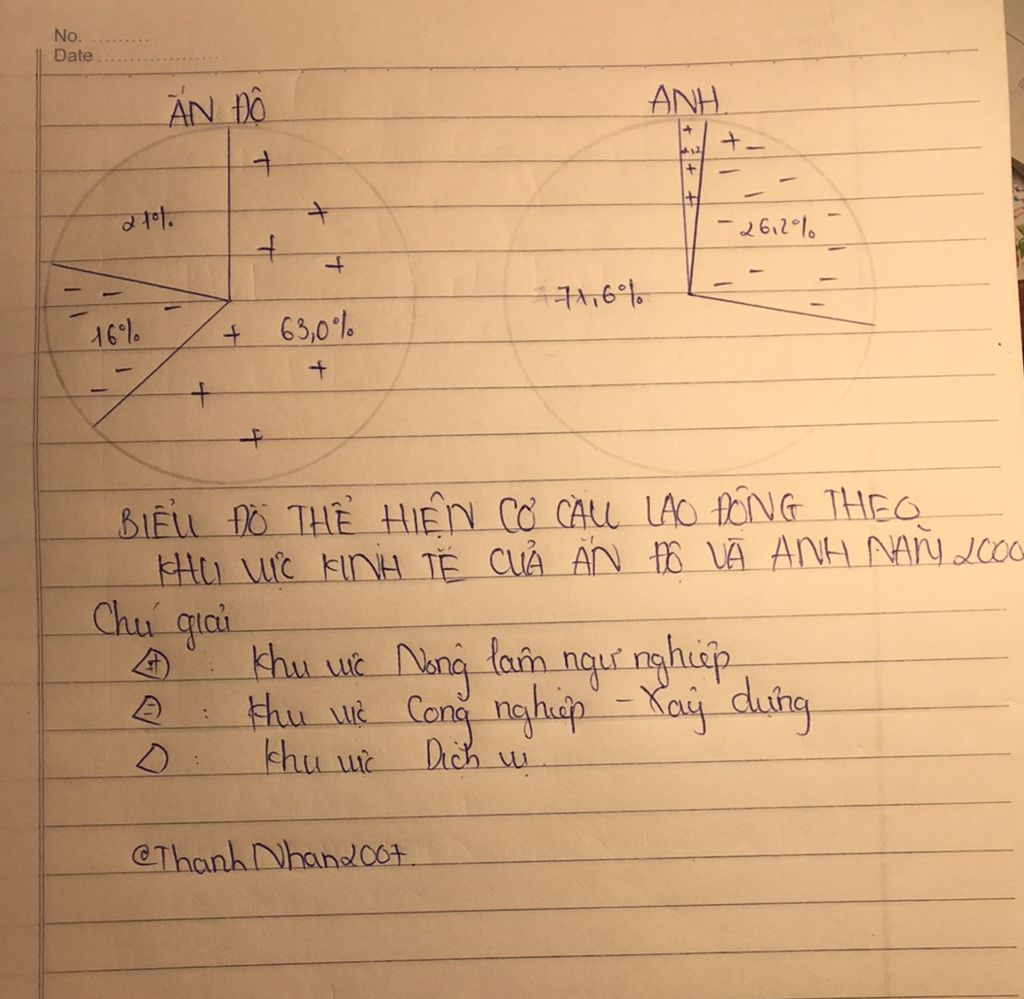 No. .........
Date ....................
ẤN ĐỘ
ANH
21%
16%
63,0%
2,2
26,2%
71,6%
BIỂU ĐỒ THỂ HIỆN CƠ CẤU LAO ĐỘNG THEO
KHU VỰC KINH TẾ CỦA ẤN ĐỘ VÀ ANH NĂM 2000
Chú giải
+ : Khu vực Nông lâm ngư nghiệp
- : Khu vực Công nghiệp - Xây dựng
: Khu vực Dịch vụ.
@ThanhNhan2007.